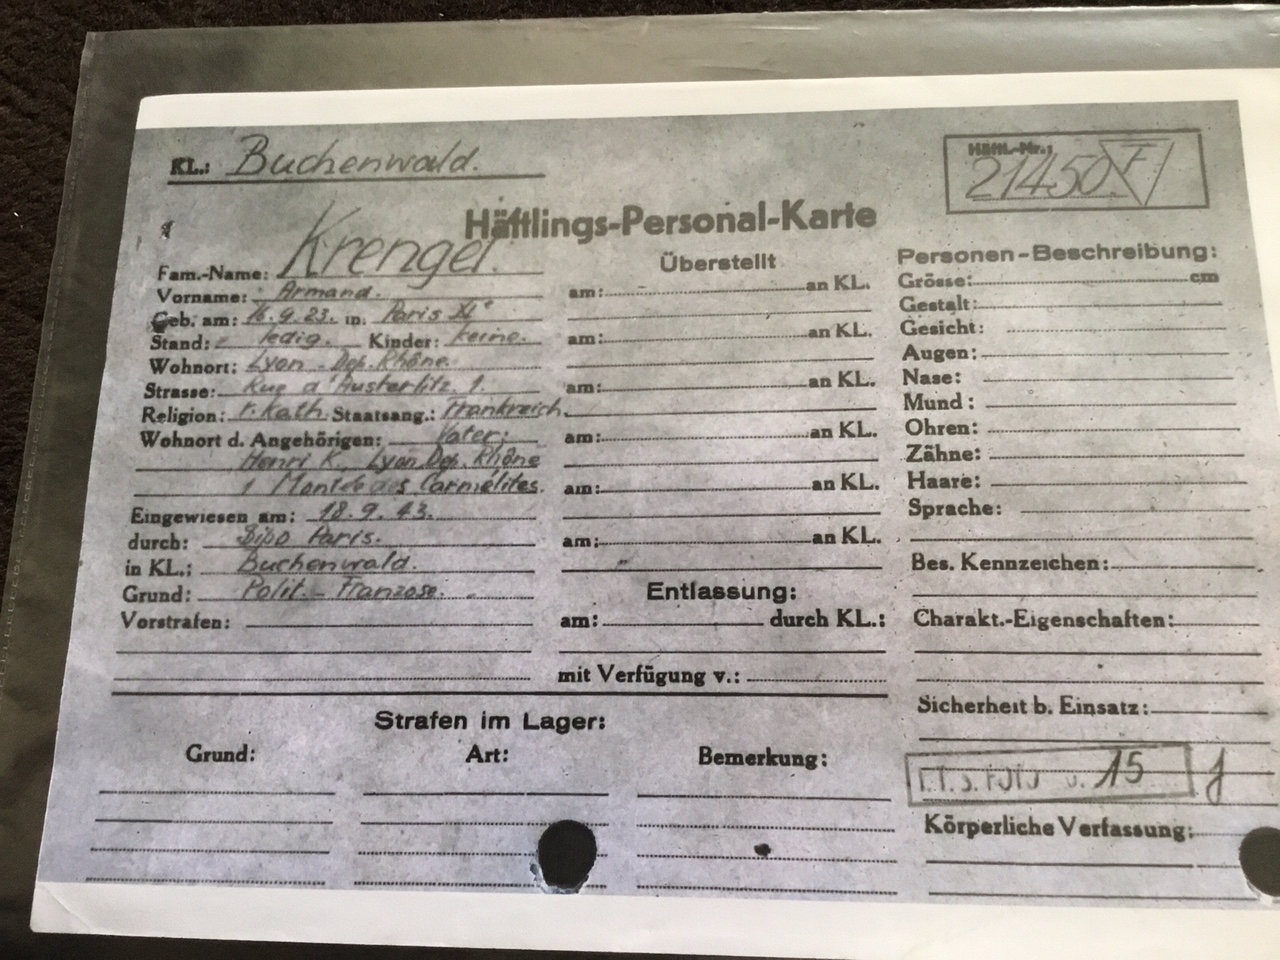 KL.: Buchenwald.
Häftl.-Nr.:
21450 F
Häftlings-Personal-Karte
Fam.-Name: Krengel.
Vorname: Armand.
Geb. am: 16.9.23. in: Paris XIᵉ
Stand: ledig. Kinder: keine.
Wohnort: Lyon - Dep. Rhône
Strasse: Rue d'Austerlitz. 1.
Religion: r. kath. Staatsang.: Frankreich.
Wohnort d. Angehörigen: Vater:
Henri K., Lyon Dep. Rhône
1 Montée des Carmélites.
Eingewiesen am: 18.9.43.
durch: Sipo Paris.
in KL.: Buchenwald.
Grund: Polit. - Franzose.
Vorstrafen:
Überstellt
am: an KL.
am: an KL.
am: an KL.
am: an KL.
am: an KL.
am: an KL.
Entlassung:
am: durch KL.:
mit Verfügung v.:
Personen-Beschreibung:
Grösse: cm
Gestalt:
Gesicht:
Augen:
Nase:
Mund:
Ohren:
Zähne:
Haare:
Sprache:
Bes. Kennzeichen:
Charakt.-Eigenschaften:
Sicherheit b. Einsatz:
I.T.S. FOTO 15
Körperliche Verfassung:
Strafen im Lager:
Grund: Art: Bemerkung: